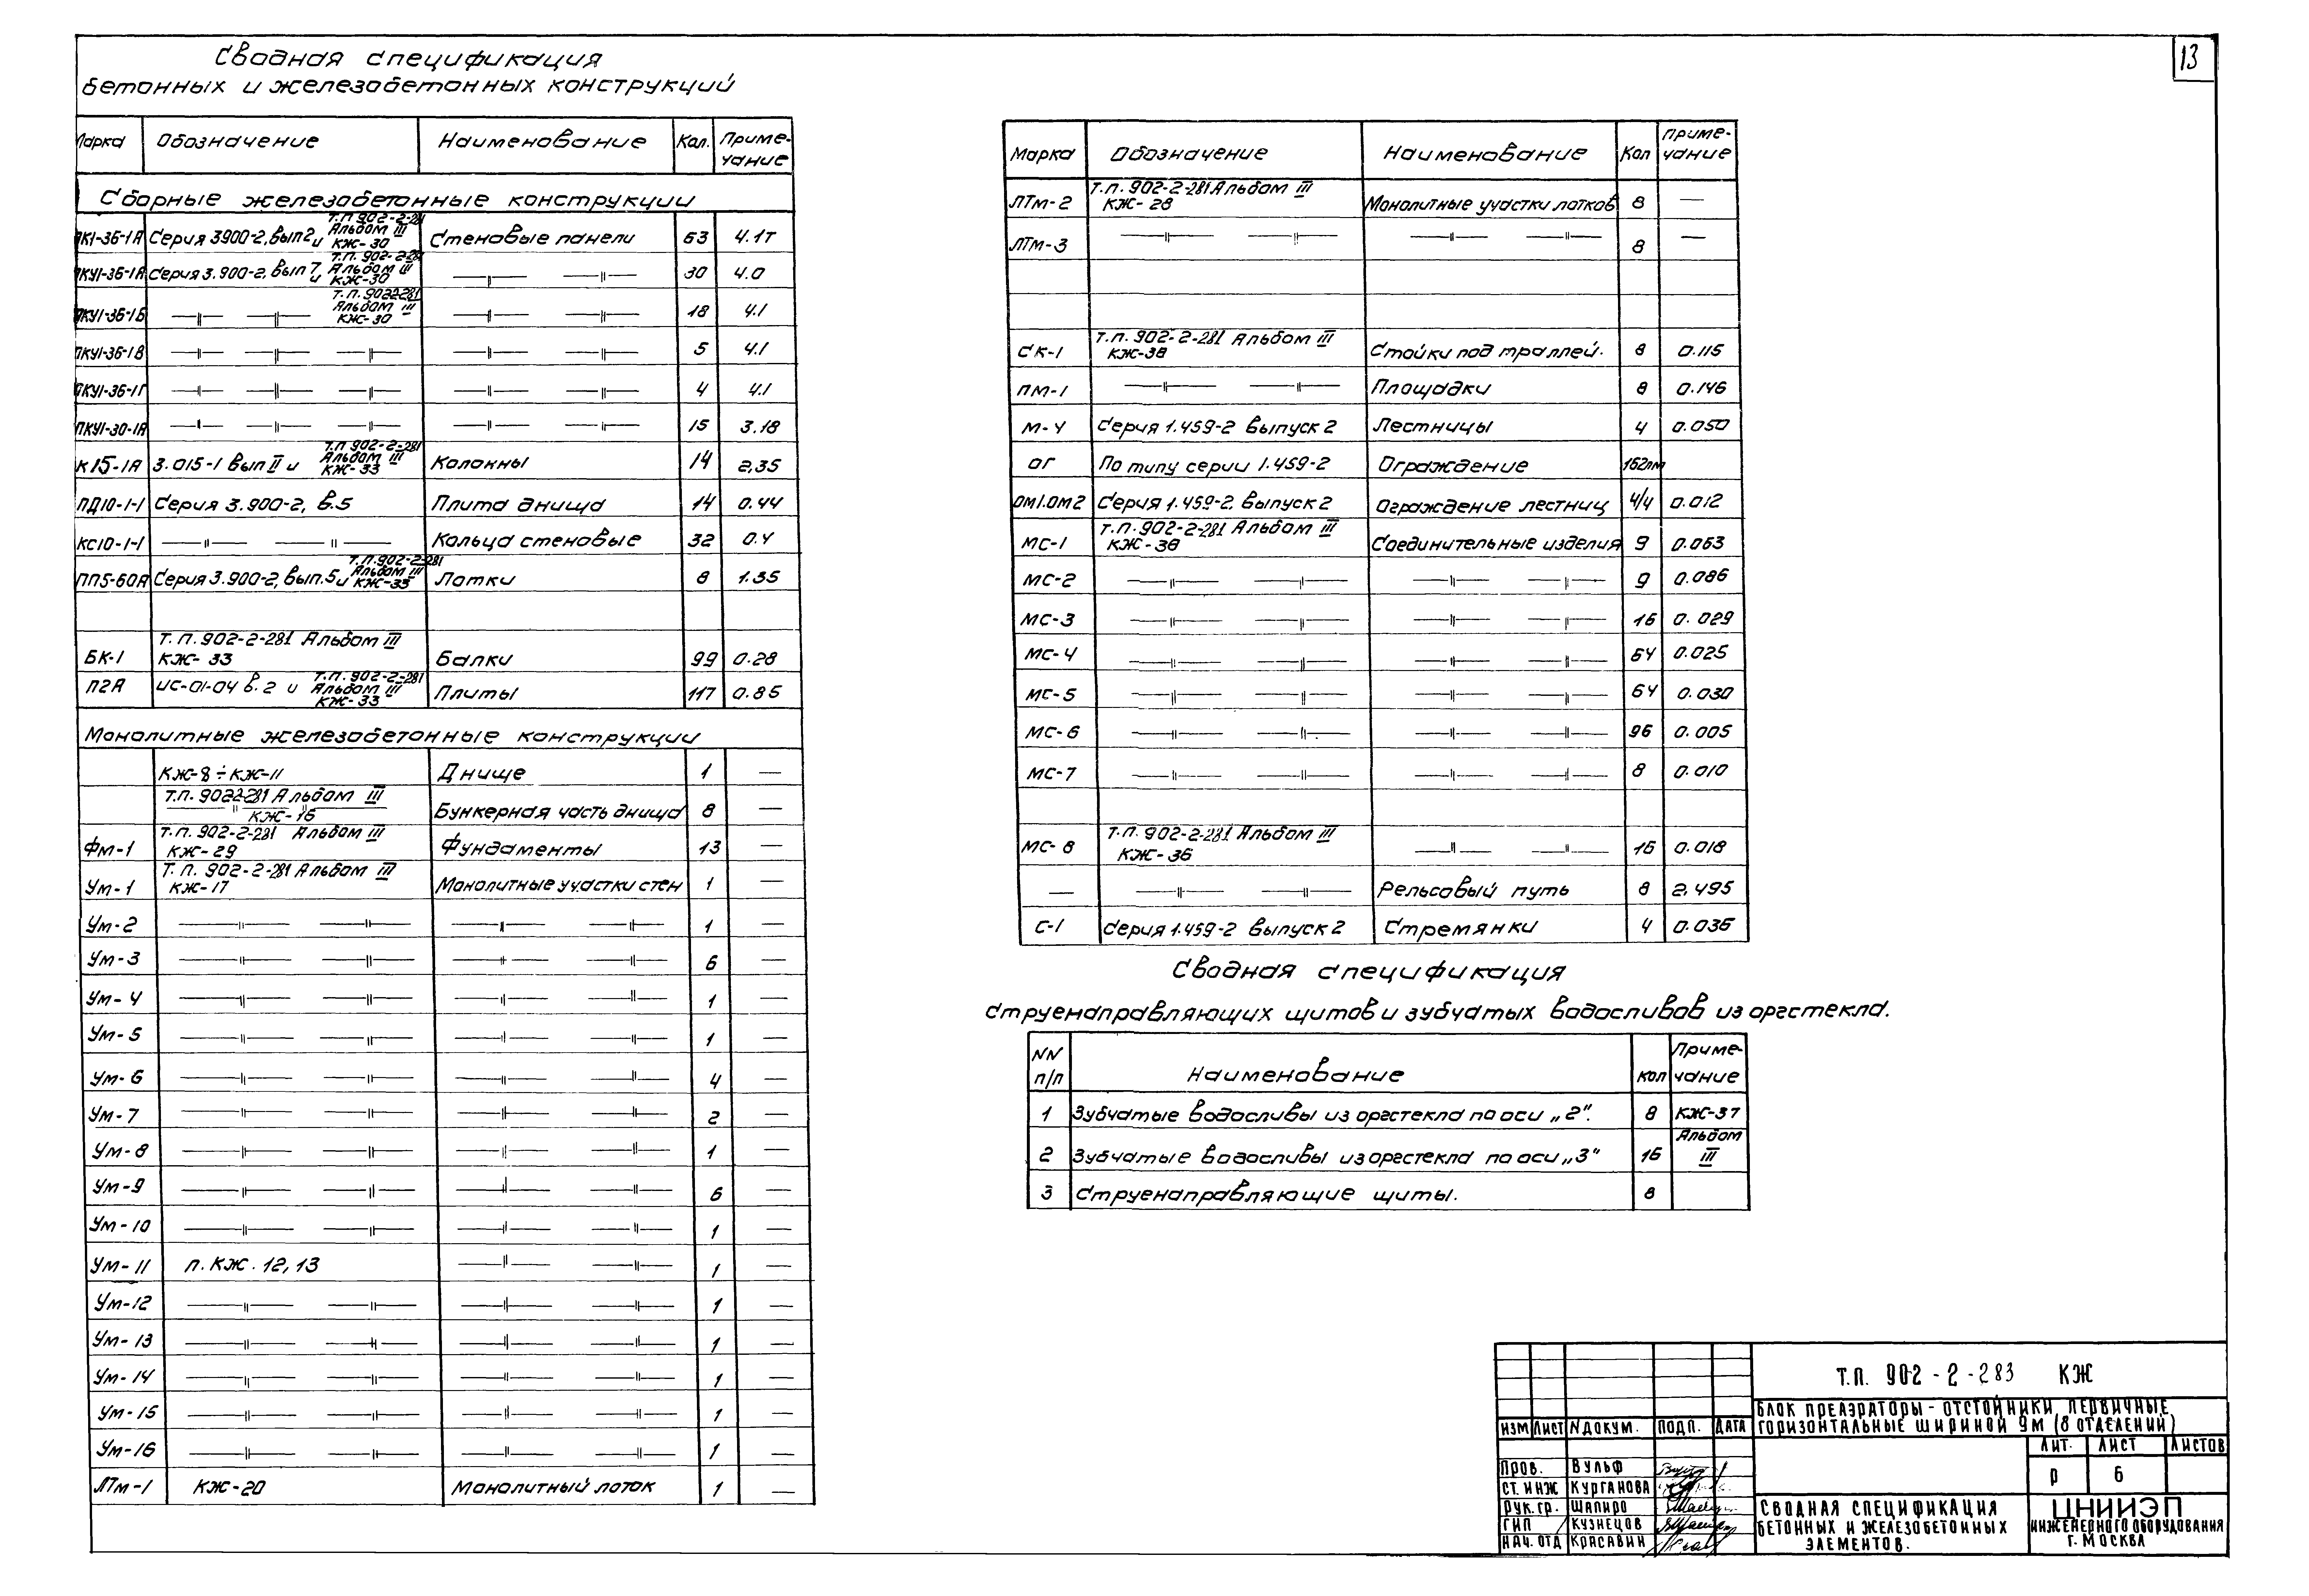 13
Сводная спецификация
бетонных и железобетонных конструкций
Марка Обозначение Наименование Кол. Приме-чание
Сборные железобетонные конструкции
ПК1-36-1А Серия 3900-2, вып 2 и Т.П 902-2-281 Альбом III КЖ-30 Стеновые панели 63 4.1т
ПКУ1-36-1А Серия 3.900-2. вып 7 и Т.П. 902-2-281 Альбом III КЖ-30 —"— —"— 30 4.0
ПКУ1-36-1Б —"— —"— Т.П. 902-2-281 Альбом III КЖ-30 —"— —"— 18 4.1
ПКУ1-36-1В —"— —"— —"— —"— —"— 5 4.1
ПКУ1-36-1Г —"— —"— —"— —"— —"— 4 4.1
ПКУ1-30-1А —"— —"— —"— —"— —"— 15 3.18
К15-1А 3.015-1 вып II и Т.П. 902-2-281 Альбом III КЖ-33 Колонны 14 2,35
ПД10-1-1 Серия 3.900-2, в.5 Плита днища 14 0.44
КС10-1-1 —"— —"— Кольца стеновые 32 0.4
ЛП5-60А Серия 3.900-2, вып.5 и Т.П.902-2-281 Альбом III КЖ-33 Лотки 8 1.35
БК-1 Т.П. 902-2-281 Альбом III КЖ-33 Балки 99 0.28
П2А ИС-01-04 в.2 и Т.П. 902-2-281 Альбом III КЖ-33 Плиты 117 0.85
Монолитные железобетонные конструкции
КЖ-8÷КЖ-11 Днище 1 —
Т.П. 902-2-281 Альбом III —"— "— КЖ-16 Бункерная часть днища 8 —
Фм-1 Т.П. 902-2-281 Альбом III КЖ-29 Фундаменты 13 —
Ум-1 Т.П. 902-2-281 Альбом III КЖ-17 Монолитные участки стен 1 —
Ум-2 —"— —"— —"— —"— 1 —
Ум-3 —"— —"— —"— —"— 6 —
Ум-4 —"— —"— —"— —"— 1 —
Ум-5 —"— —"— —"— —"— 1 —
Ум-6 —"— —"— —"— —"— 4 —
Ум-7 —"— —"— —"— —"— 2 —
Ум-8 —"— —"— —"— —"— 1 —
Ум-9 —"— —"— —"— —"— 6 —
Ум-10 —"— —"— —"— —"— 1 —
Ум-11 л. КЖ. 12,13 —"— —"— 1 —
Ум-12 —"— —"— —"— —"— 1 —
Ум-13 —"— —"— —"— —"— 1 —
Ум-14 —"— —"— —"— —"— 1 —
Ум-15 —"— —"— —"— —"— 1 —
Ум-16 —"— —"— —"— —"— 1 —
ЛТм-1 КЖ-20 Монолитный лоток 1 —
Марка Обозначение Наименование Кол Приме-чание
ЛТм-2 Т.П. 902-2-281 Альбом III КЖ-28 Монолитные участки лотков 8 —
ЛТм-3 —"— —"— —"— —"— 8 —
СК-1 Т.П. 902-2-281 Альбом III КЖ-38 Стойки под троллей. 8 0.115
ПМ-1 —"— —"— Площадки 8 0.146
М-4 Серия 1.459-2 Выпуск 2 Лестницы 4 0.050
ОГ По типу серии 1.459-2 Ограждение 162пм
ОМ1.ОМ2 Серия 1.459-2 Выпуск 2 Ограждение лестниц 4/4 0.012
МС-1 Т.П. 902-2-281 Альбом III КЖ-36 Соединительные изделия 9 0.063
МС-2 —"— —"— —"— —"— 9 0.086
МС-3 —"— —"— —"— —"— 16 0.029
МС-4 —"— —"— —"— —"— 64 0.025
МС-5 —"— —"— —"— —"— 64 0.030
МС-6 —"— —"— —"— —"— 96 0.005
МС-7 —"— —"— —"— —"— 8 0.010
МС-8 Т.П. 902-2-281 Альбом III КЖ-36 —"— —"— 16 0.018
— —"— —"— Рельсовый путь 8 2.495
С-1 Серия 1.459-2 Выпуск 2 Стремянки 4 0.036
Сводная спецификация
струенаправляющих щитов и зубчатых водосливов из оргстекла.
NN п/п Наименование Кол Приме-чание
1 Зубчатые водосливы из оргстекла по оси „2". 8 КЖ-37
2 Зубчатые водосливы из оргстекла по оси „3" 16 Альбом III
3 Струенаправляющие щиты. 8
Т.П. 902-2-283 КЖ
БЛОК ПРЕАЭРАТОРЫ-ОТСТОЙНИКИ ПЕРВИЧНЫЕ
ГОРИЗОНТАЛЬНЫЕ ШИРИНОЙ 9М (8 ОТДЕЛЕНИЙ)
ИЗМ ЛИСТ N ДОКУМ. ПОДП. ДАТА
ЛИТ. ЛИСТ ЛИСТОВ
Р 6
ПРОВ. ВУЛЬФ
СТ. ИНЖ КУРГАНОВА
РУК. ГР. ШАПИРО
ГИП КУЗНЕЦОВ
НАЧ. ОТД КРАСАВИН
СВОДНАЯ СПЕЦИФИКАЦИЯ
БЕТОННЫХ И ЖЕЛЕЗОБЕТОННЫХ
ЭЛЕМЕНТОВ.
ЦНИИЭП
ИНЖЕНЕРНОГО ОБОРУДОВАНИЯ
Г. МОСКВА